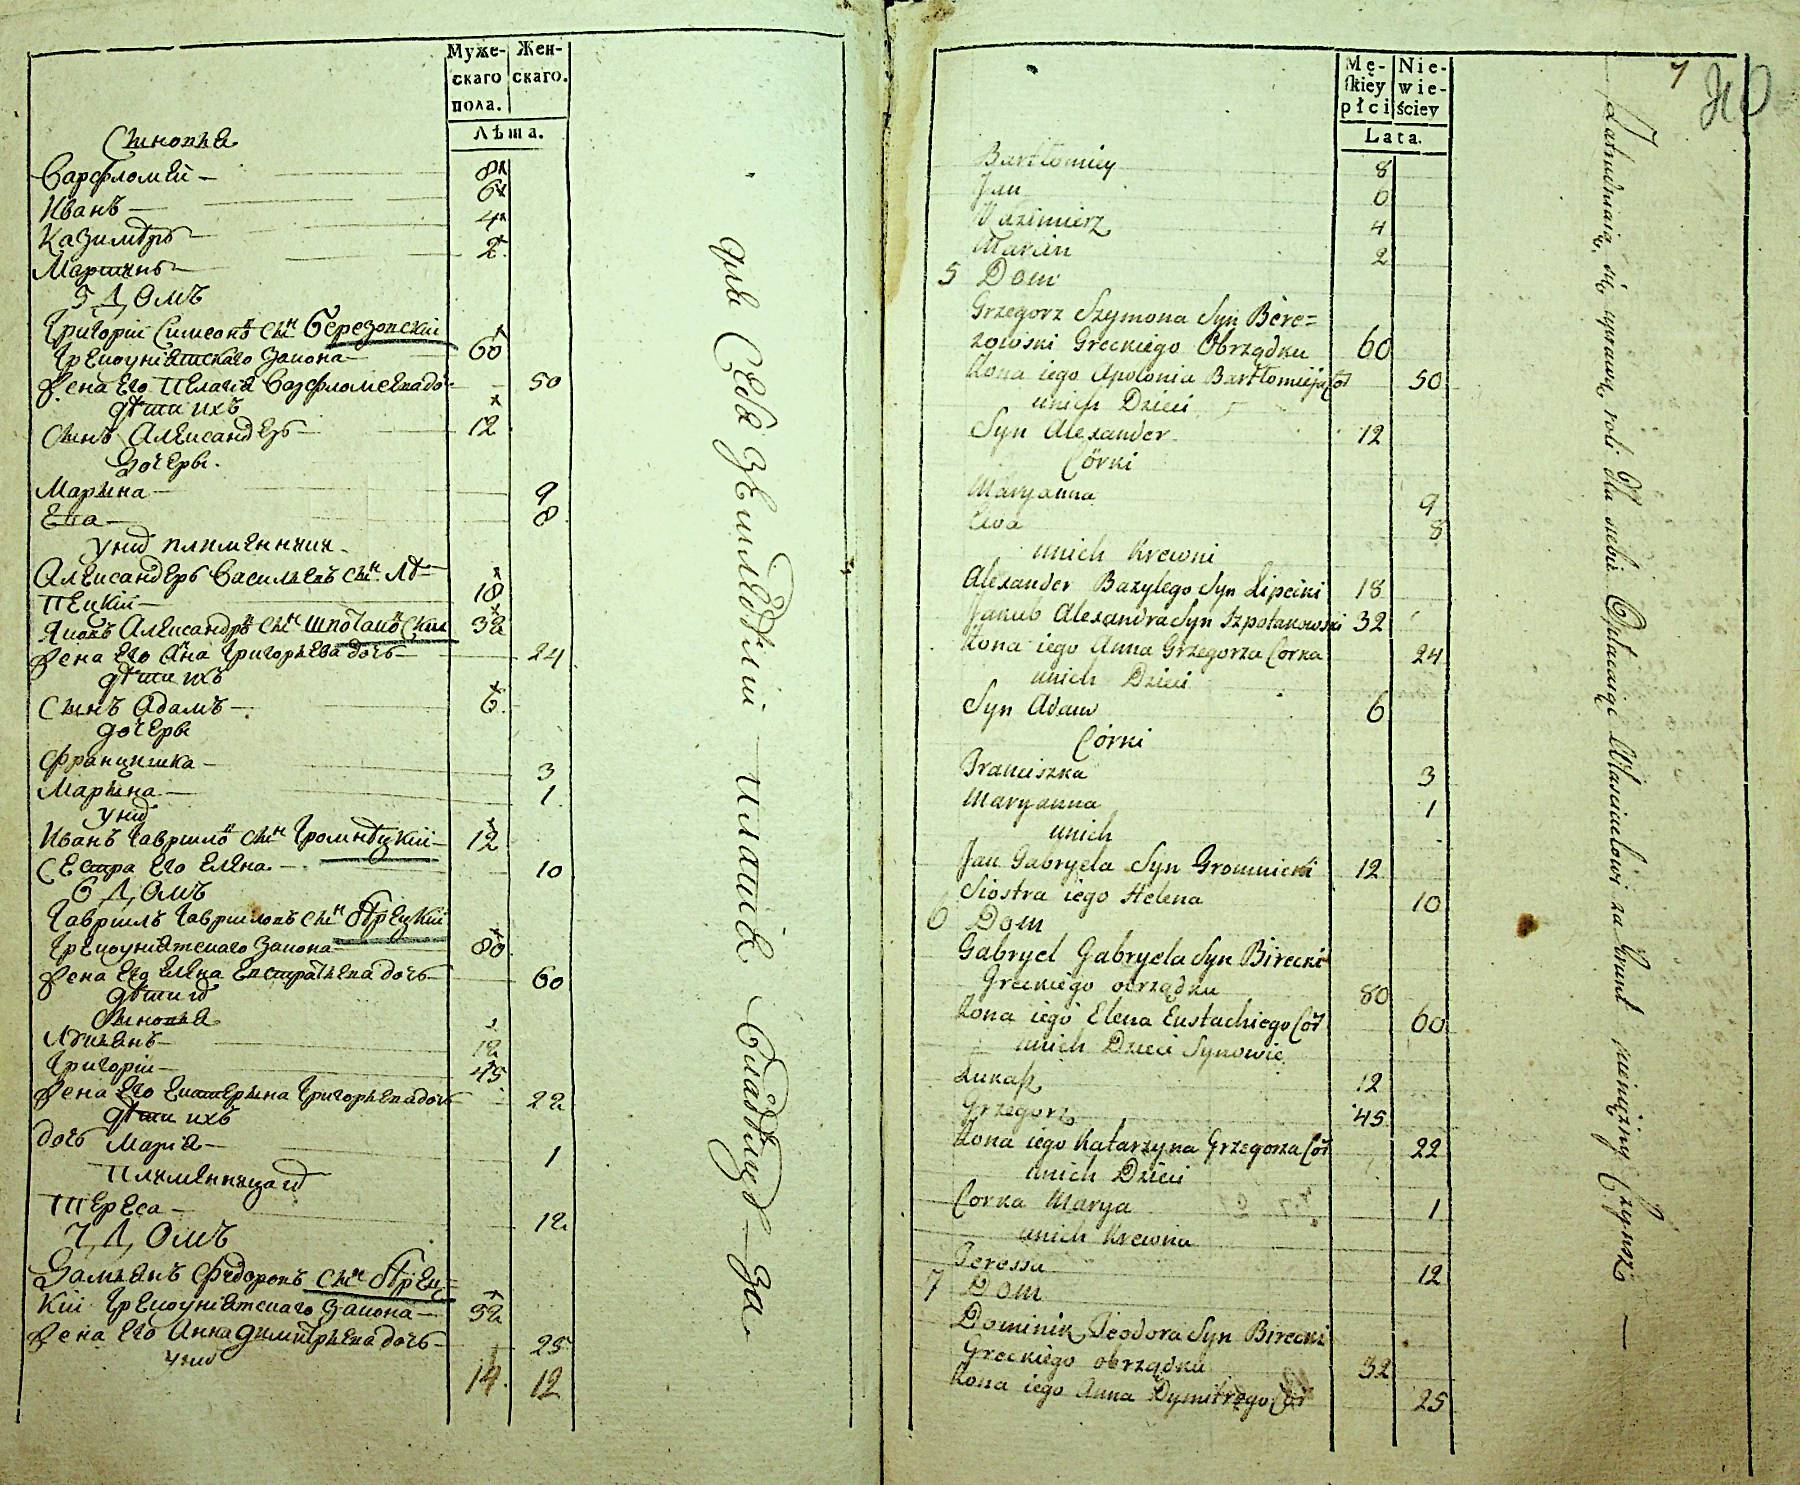 Муже-
скаго
пола.
Жен-
скаго.
Лѣта.
Сыновья
Варфломей — 8
Иванъ — 6
Казимѣръ — 4
Мартинъ — 2
5 Домъ
Григорій Симеонъ сынъ Березовскій
Грекоуніятскаго Закона — 60
Жена Его Пелагія Варфломеева дочь — 50
Дѣти ихъ
Сынъ Александеръ — 12
Дочери
Марына — 9
Ева — 8
у нихъ племенники
Александеръ Васильевъ сынъ Лѣ=
пецкій — 18
Яковъ Александръ сынъ Шпотаковскій 32
Жена Его Анна Григорьева дочь — 24
Дѣти ихъ
Сынъ Адамъ — 6
дочери
Францишка — 3
Марына — 1
у нихъ
Иванъ Гавриловъ сынъ Громницкій — 12
Сестра Его Елена — 10
6 Домъ
Гаврилъ Гавриловъ сынъ Бѣрецкій
Грекоуніятскаго Закона — 80
Жена Его Елена Евстратьева дочь — 60
Дѣти
Сыновья
Лукьянъ — 12
Григорій — 45
Жена Его Екатерына Григорьева дочь — 22
Дѣти ихъ
дочь Марія — 1
Племенница
Тереса — 12
7 Домъ
Дамьянъ Федоровъ сынъ Бѣрец=
кій Грекоуніятскаго Закона — 32
Жена Его Анна Димитрьева дочь — 25
14 12
для Себя Платя Владѣльцу За
Mę-
ſkiey
płci
Nie-
wie-
ściey
Lata.
7
Bartłomiey 8
Jan 6
Kazimierz 4
Marcin 2
5 Dom
Grzegorz Szymona Syn Bere=
zowski Greckiego Obrządku 60
Zona iego Apolonia Bartłomieja Cór 50
unich Dzieci
Syn Alexander 12
Córki
Maryanna 9
Ewa 8
unich Krewni
Alexander Bazylego Syn Lipecki 18
Jakub Alexandra Syn Szpotakowski 32
Zona iego Anna Grzegorza Corka 24
unich Dzieci
Syn Adam 6
Córki
Franciszka 3
Maryanna 1
unich
Jan Gabryela Syn Gromnicki 12
Siostra iego Helena 10
6 Dom
Gabryel Gabryela Syn Birecki
Greckiego obrządku 80
Zona iego Elena Eustachiego Cór 60
unich Dzieci Synowie
Łukasz 12
Grzegorz 45
Zona iego Katarzyna Grzegorza Cór 22
unich Dzieci
Corka Marya 1
unich Krewna
Teressa 12
7 Dom
Dominik Teodora Syn Birecki
Greckiego obrządku 32
Zona iego Anna Dymitrego Cór 25
Zatrudniaią się uprawą roli dla siebie Opłacaiąc Właścicielowi za Grunt pieniężny Czynsz —